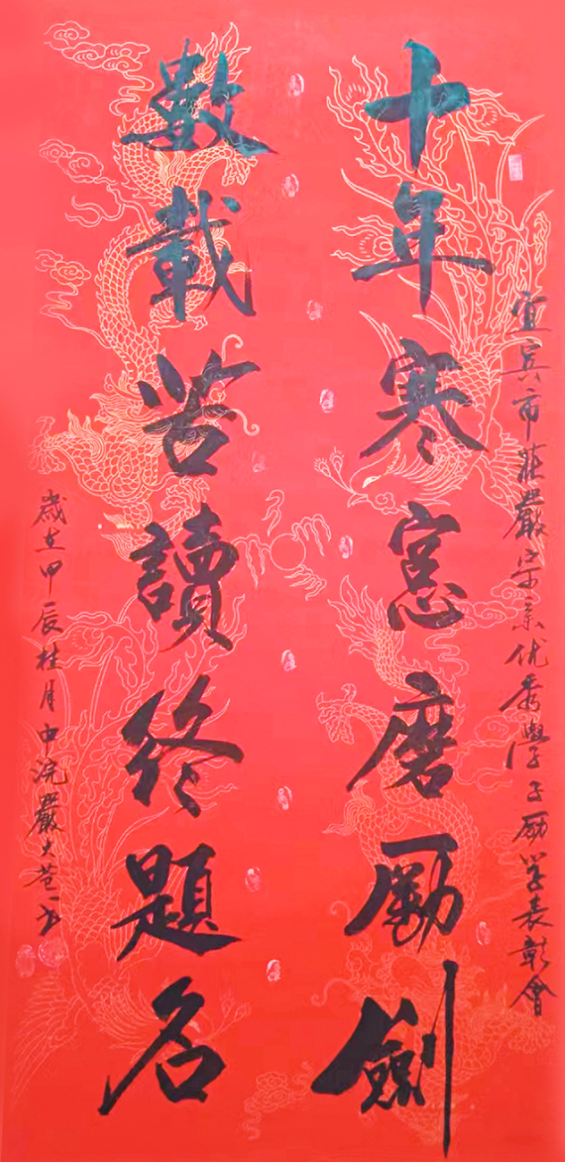 宜宾市莊嚴宗亲优秀學子励学表彰會
十年寒窓磨励劍
數載苦讀終題名
歲在甲辰桂月中浣嚴大蒼书